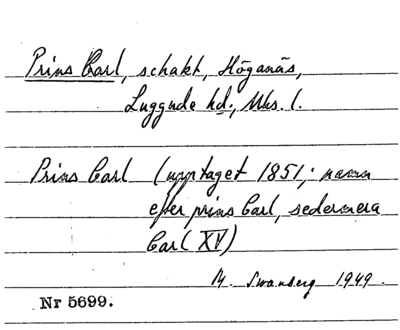 Prins Carl, schakt, Höganäs,
Luggude hd., Mhs. l.
Prins Carl (upptaget 1851; namn
efter prins Carl, sedermera
Carl XV)
M. Swanberg 1949.
Nr 5699.